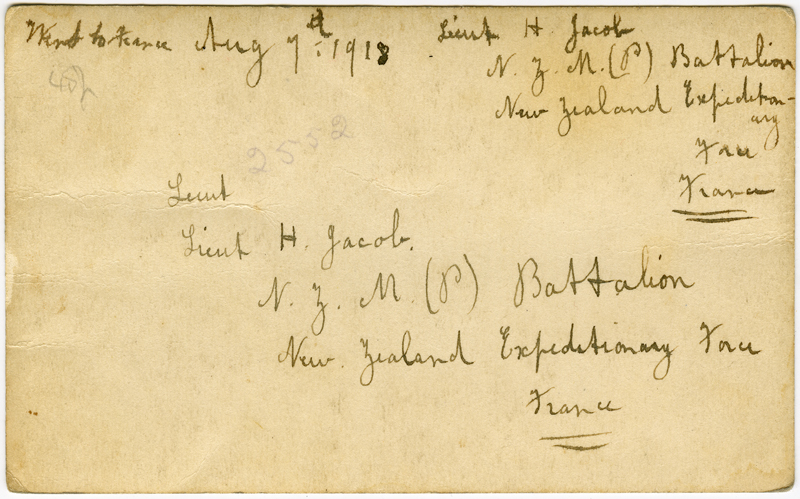 Went to France Aug 7th: 1918
Lieut H. Jacob
N. Z. M. (P) Battalion
New Zealand Expedition-
ary
Force
France
2552
Lieut
Lieut H. Jacob.
N. Z. M. (P) Battalion
New. Zealand Expeditionary Force
France